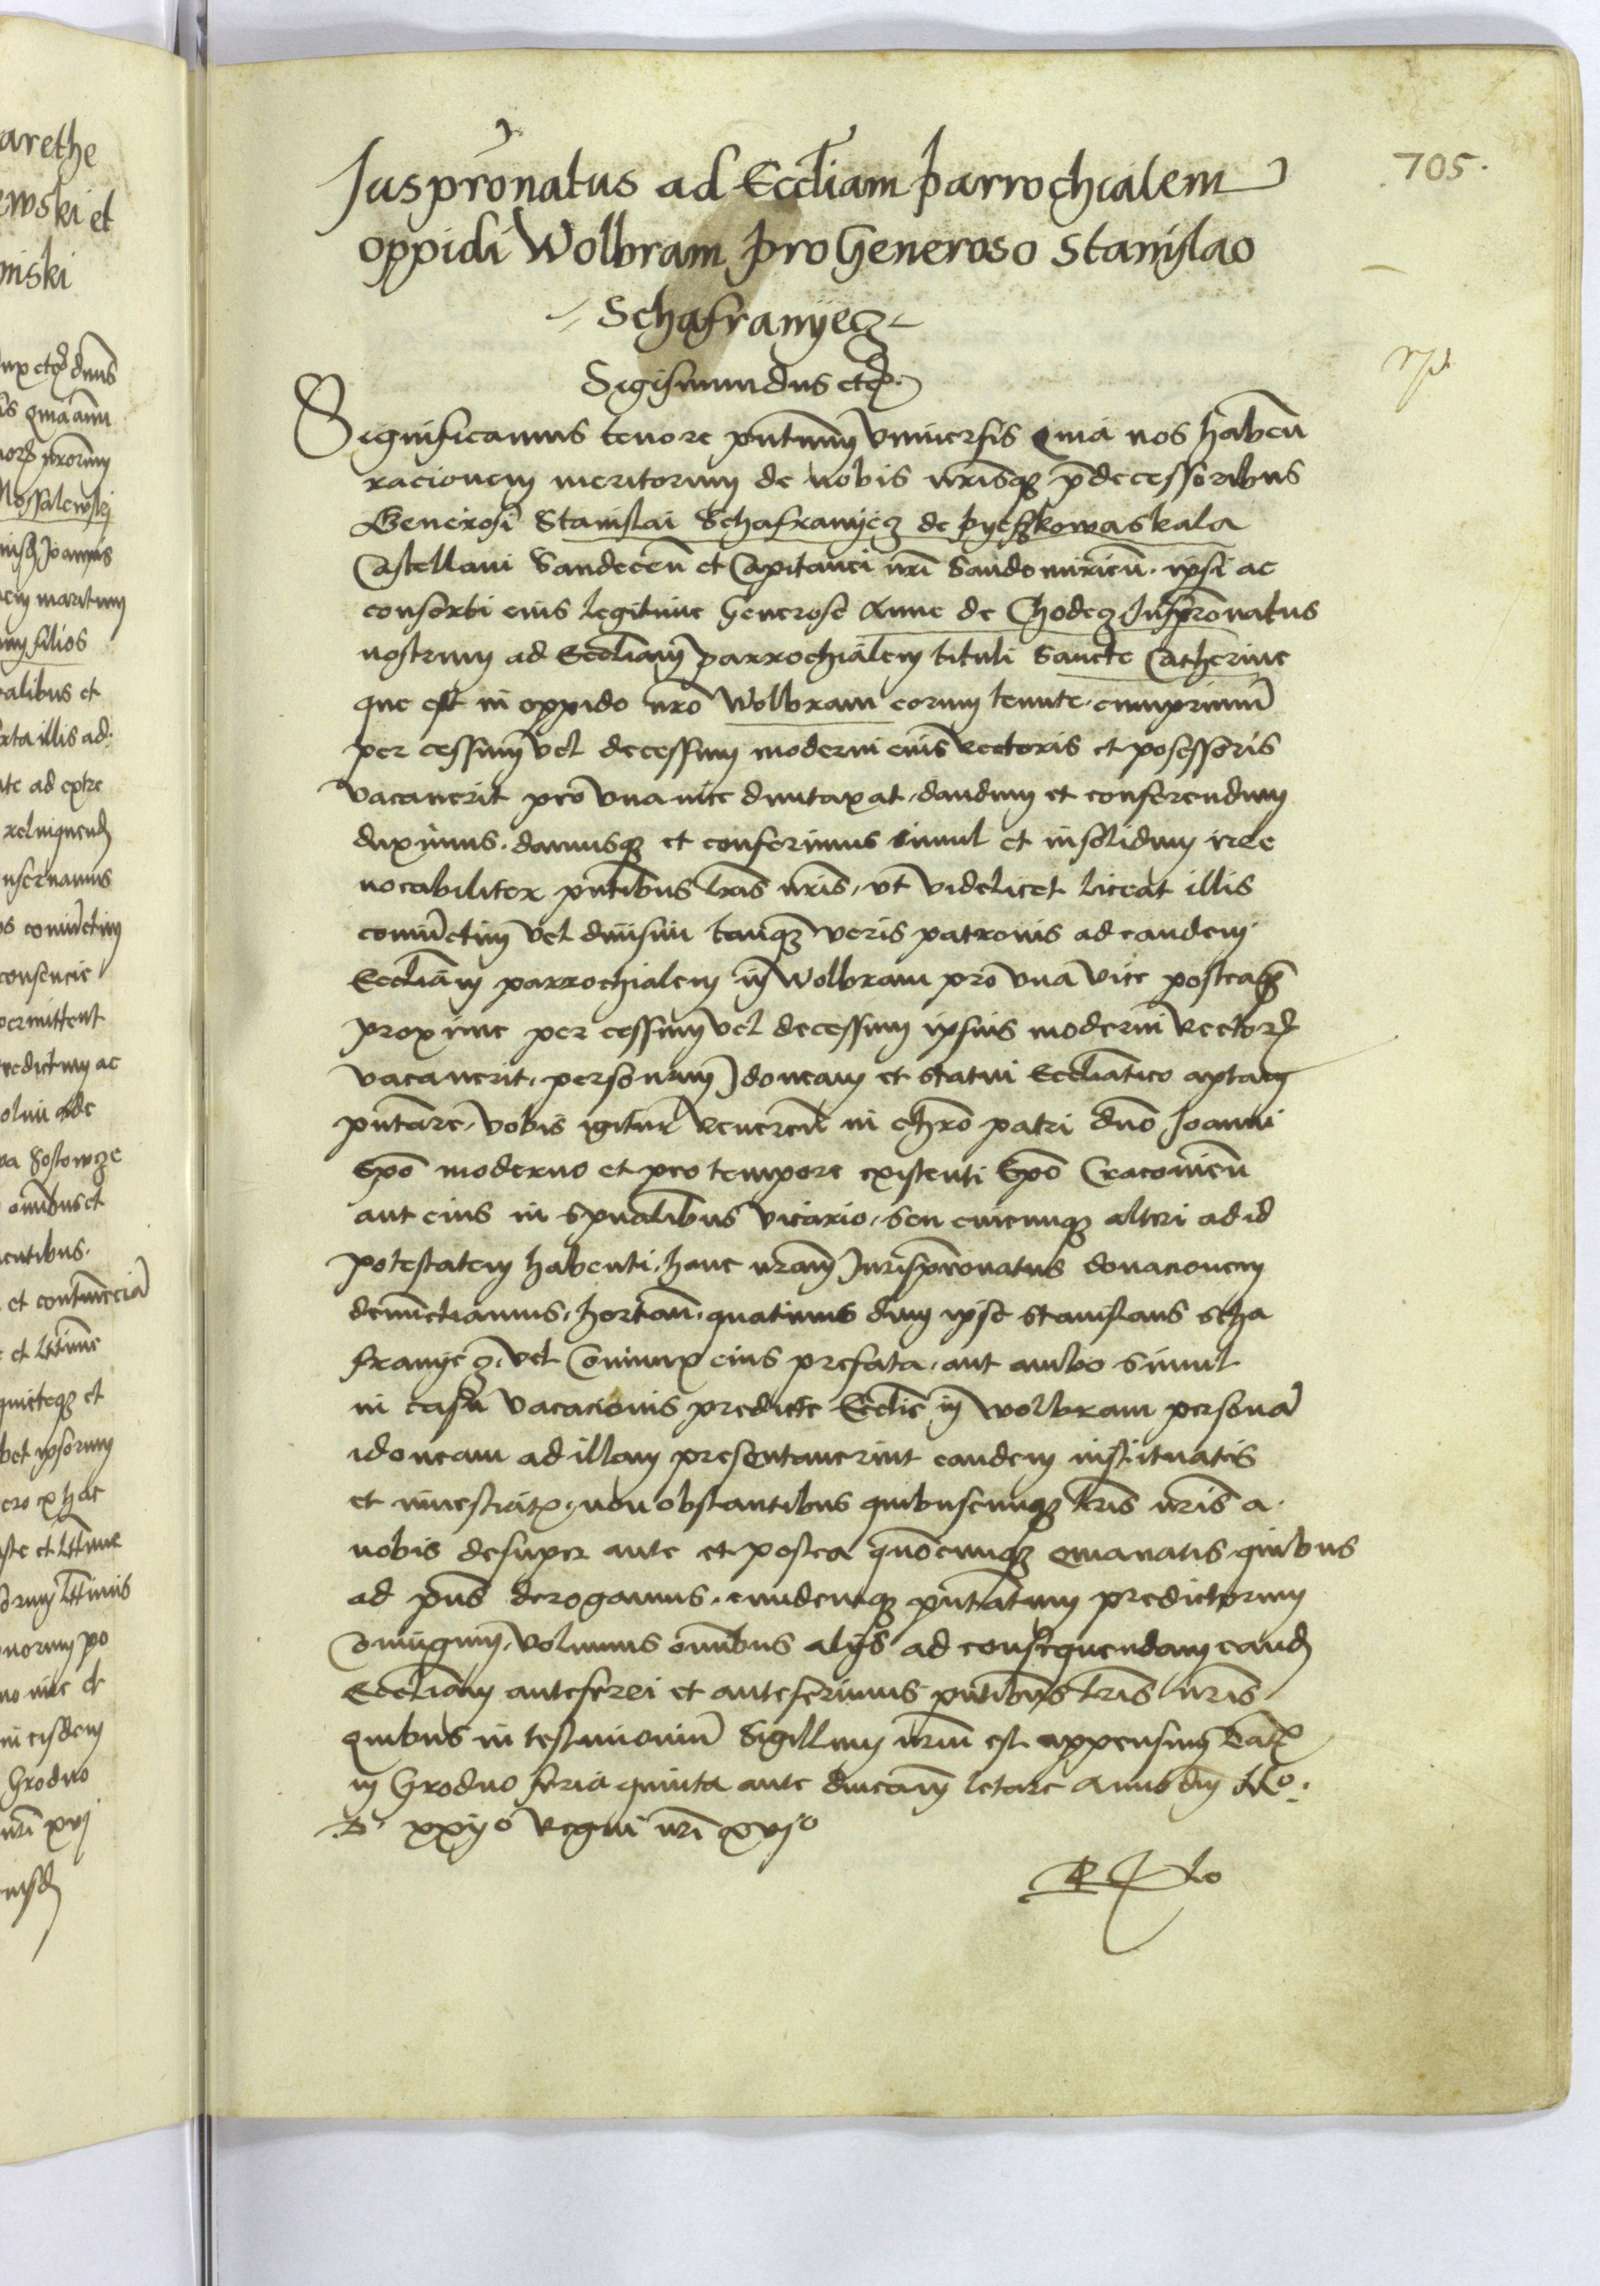 705.
Juspronatus ad Eccliam parrochialem
oppidi Wolbram pro Generoso Stanislao
Schafranyecz
Sigismundus etc.
Significamus tenore pntium Universis Quia nos haben
racionem meritorum de nobis nrisque predecessoribus
Generosi Stanislai Schafranyecz de pyeszkowaskala
Castellani Sandecen et Capitanei nri Sandomirien. ipsi ac
consorti eius legitime Generose Anne de Chodecz Juspronatus
nostrum ad Eccliam parrochialem tituli Sancte Catherine
que est in oppido nro Wolbram eorum tenute. cumprimum
per cessum vel decessum moderni eius Rectoris et posessoris
vacaverit pro una vice dumtaxat. dandum et conferendum
duximus. damusque et conferimus simul et insolidum irre
vocabiliter pntibus lras nris, ut videlicet liceat illis
coniunctim vel divisim tanquam veris patronis ad eandem
Eccliam parrochialem in Wolbram pro una vice posteaque
proxime per cessum vel decessum ipsius moderni Rectoris
vacaverit. personam Idoneam et statui Eccliastico aptam
pntare. Vobis igitur Reveren in chro patri dno Joanni
Epo moderno et pro tempore existenti Epo Cracovien
aut eius in spualibus vicario, seu cuicumque alteri ad id
potestatem habenti, hanc nram Jurispronatus donacionem
denunctiamus, hortan. quatinus dum ipse Stanislaus Scha
franyecz, vel Coniunx eius prefata, aut ambo simul
in casu vacacionis predicte Ecclie in Wolbram persona
idoneam ad illam presentaverint eandem instituatis
et investiatis, non obstantibus quibuscumque lris nris a
nobis desuper ante et postea quocumque emanatis. quibus
ad pns derogamus. eundemque pntatum predictorum
Coniugum, volumus omnibus alys ad consequendam eand
Eccliam anteferri et anteferimus pntibus lris nris
Quibus in testimonium Sigillum nrum est appensum Dat
in Grodno feria quinta ante dnicam letare Anno dni Mo.
D xxijo Regni nri xvjo